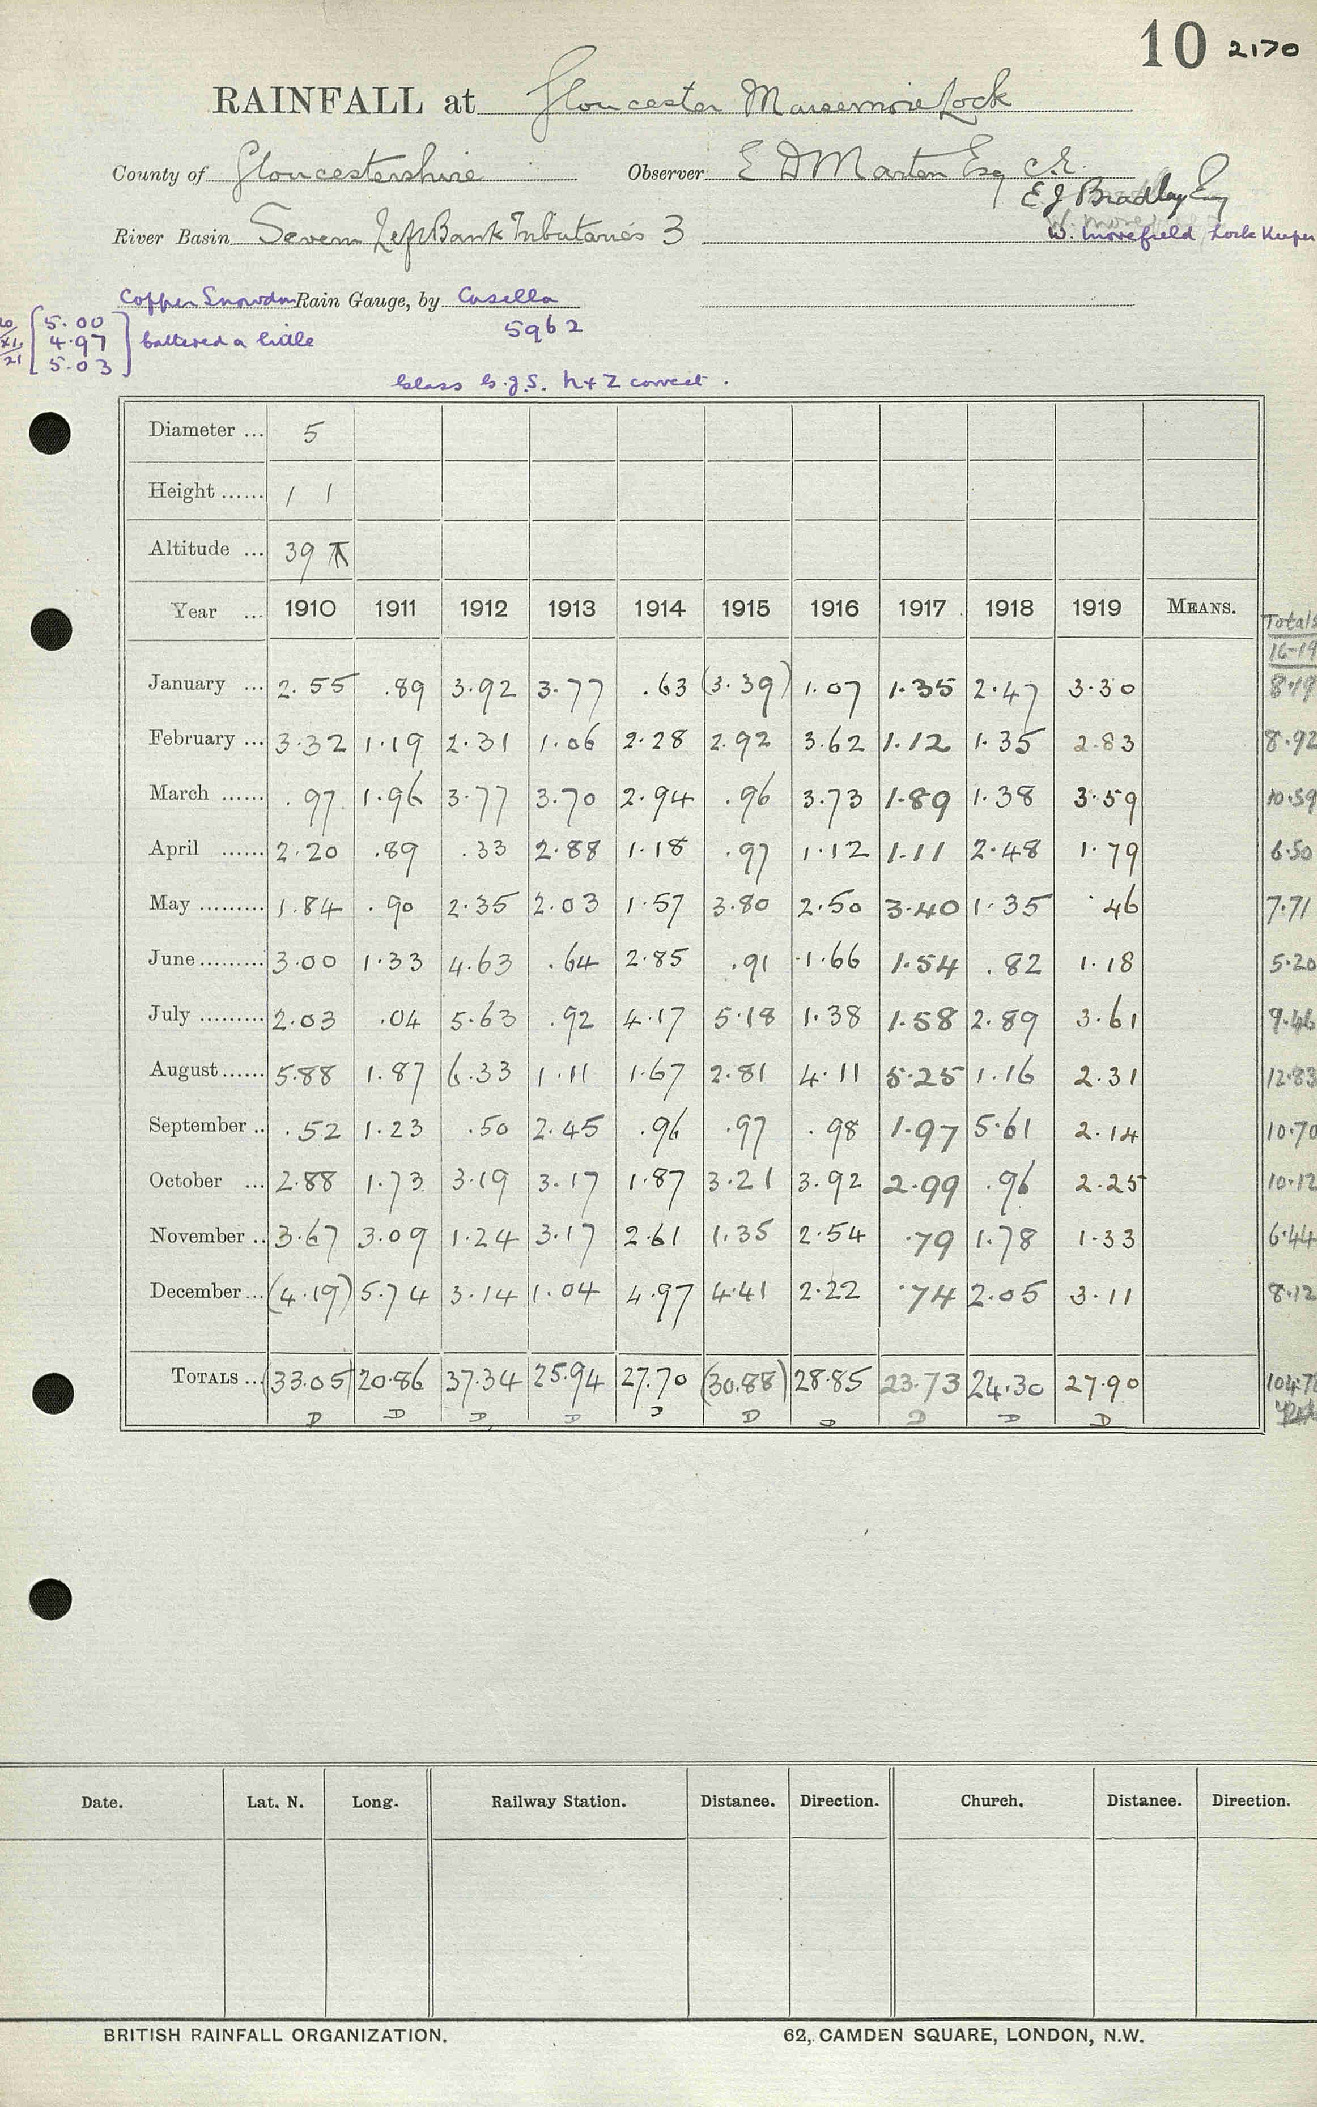 10 2170
RAINFALL at Gloucester Maisemore Lock
County of Gloucestershire Observer E D Marten Esq C.E.
E J Bradley Esq
River Basin Severn Left Bank Tributaries 3 W. Morefield Lock Keeper
Copper Snowdon Rain Gauge, by Casella
5962
5.00
4.97 battered a little
5.03
Glass b.g.S. h+Z correct.
Diameter ... 5
Height ...... 1 1
Altitude ... 39
Year ... 1910 1911 1912 1913 1914 1915 1916 1917 1918 1919 MEANS. Totals
16-19
January ... 2.55 .89 3.92 3.77 .63 (3.39) 1.07 1.35 2.47 3.30 8.19
February ... 3.32 1.19 2.31 1.06 2.28 2.92 3.62 1.12 1.35 2.83 8.92
March ...... .97 1.96 3.77 3.70 2.94 .96 3.73 1.89 1.38 3.59 10.59
April ...... 2.20 .89 .33 2.88 1.18 .97 1.12 1.11 2.48 1.79 6.50
May ......... 1.84 .90 2.35 2.03 1.57 3.80 2.50 3.40 1.35 .46 7.71
June ......... 3.00 1.33 4.63 .64 2.85 .91 1.66 1.54 .82 1.18 5.20
July ......... 2.03 .04 5.63 .92 4.17 5.18 1.38 1.58 2.89 3.61 9.46
August ...... 5.88 1.87 6.33 1.11 1.67 2.81 4.11 5.25 1.16 2.31 12.83
September .. .52 1.23 .50 2.45 .96 .97 .98 1.97 5.61 2.14 10.70
October ... 2.88 1.73 3.19 3.17 1.87 3.21 3.92 2.99 .96 2.25 10.12
November .. 3.67 3.09 1.24 3.17 2.61 1.35 2.54 .79 1.78 1.33 6.44
December ... (4.19) 5.74 3.14 1.04 4.97 4.41 2.22 .74 2.05 3.11 8.12
TOTALS .. (33.05) 20.86 37.34 25.94 27.70 (30.88) 28.85 23.73 24.30 27.90 104.7
D D D D D D D D D D
Date. Lat. N. Long. Railway Station. Distance. Direction. Church. Distance. Direction.
BRITISH RAINFALL ORGANIZATION. 62, CAMDEN SQUARE, LONDON, N.W.